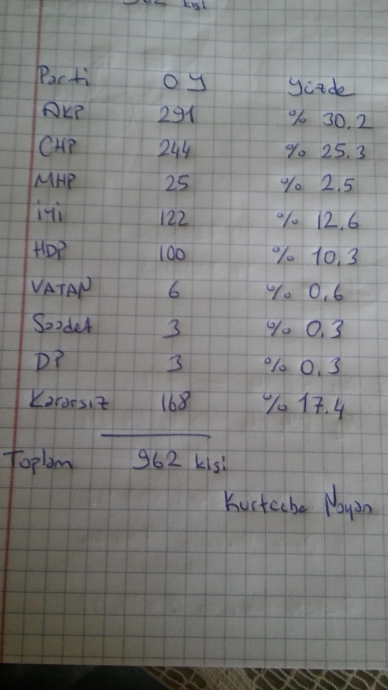 962 kişi
Parti OY Yüzde
AKP 291 % 30.2
CHP 244 % 25.3
MHP 25 % 2.5
iyi 122 % 12.6
HDP 100 % 10.3
VATAN 6 % 0.6
Saadet 3 % 0.3
DP 3 % 0.3
Kararsız 168 % 17.4
Toplam 962 kişi
Kurtcebe Noyan